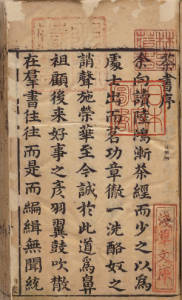 茶書序
余向讀陸鴻漸茶經而少之以爲
處士出而茗功章徹一洗酪奴之
誚聲施榮華至今誠於此道爲鼻
祖顧後來好事之彦羽翼鼓吹散
在羣書往往而是而編緝無聞統
淺草文庫